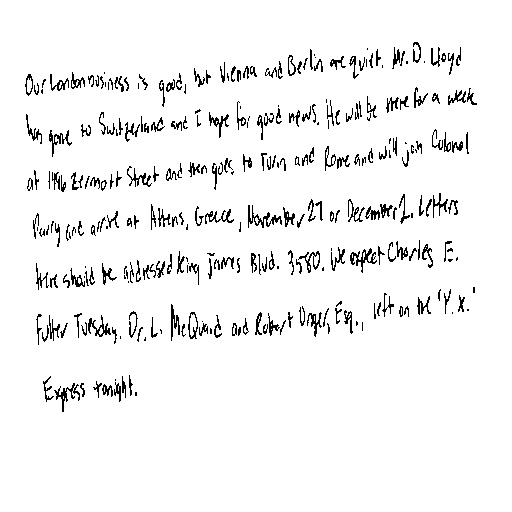 Our London business is good, but Vienna and Berlin are quiet. Mr. D. Lloyd
has gone to Switzerland and I hope for good news. He will be there for a week
at 1496 Zermott Street and then goes to Turin and Rome and will join Colonel
Parry and arrive at Athens, Greece, November 27 or December 2. Letters
there should be addressed King James Blvd. 3580. We expect Charles E.
Fuller Tuesday. Dr. L. McQuaid and Robert Unger, Esq., left on the 'Y.X.'
Express tonight.